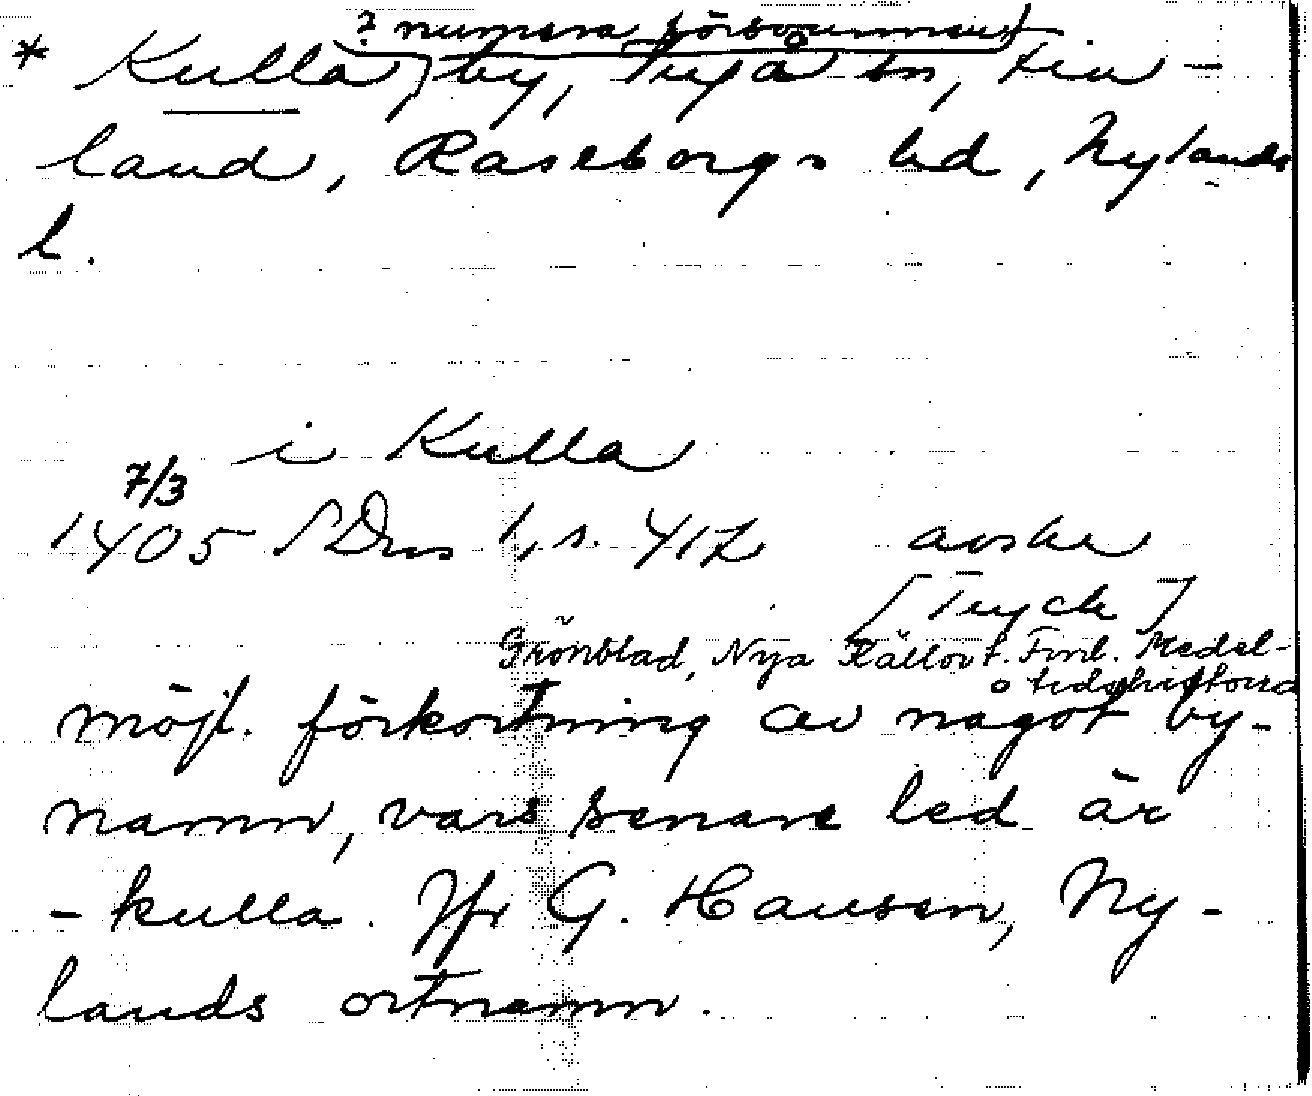 ? numera försvunnen
* Kulla, by, Ingå sn, Fin-
land, Raseborgs hd, Nylands
l.
i Kulla
7/3
1405 SDns 1, s. 412 avskr
[Tryck]
Grönblad, Nya Källor t. Finl. Medel-
tidshistoria
möjl. förkortning av något by-
namn, vars senare led är
-kulla. Jfr G. Hausen, Ny-
lands ortnamn.